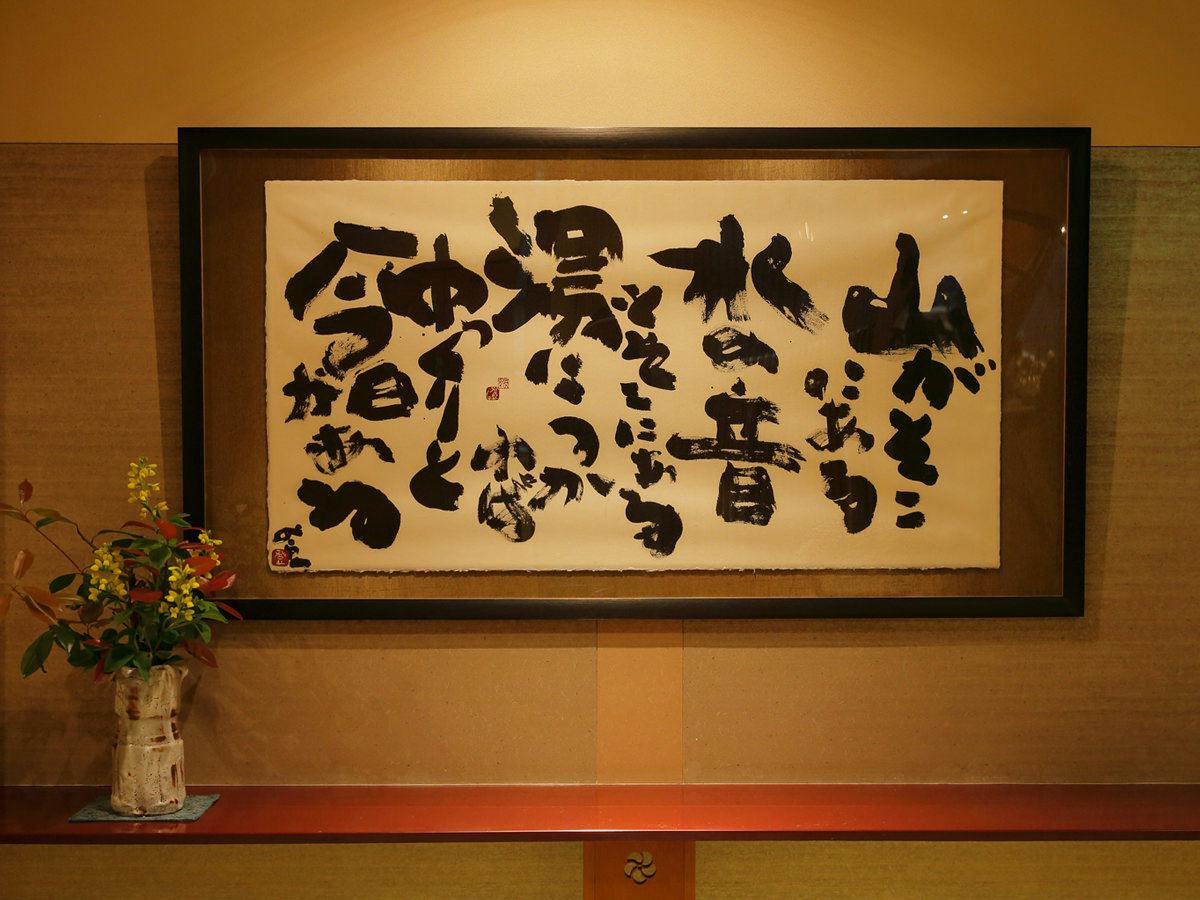 山がそこ
にある
水の音
そこにある
湯に
つか
れば
ゆっくりと
今日がある